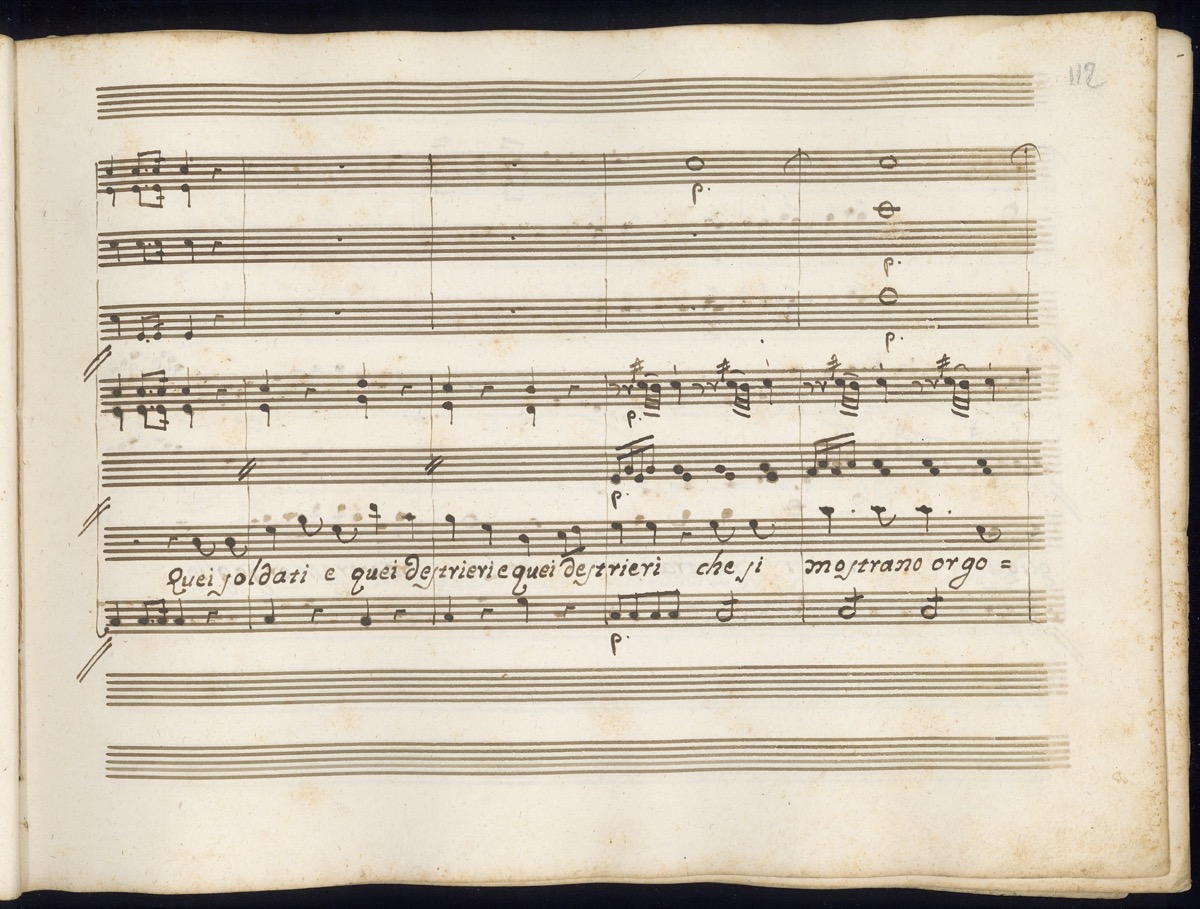 112
p.
p.
p.
p.
p.
Quei soldati e quei destrieri e quei destrieri che si mostrano orgo =
p.